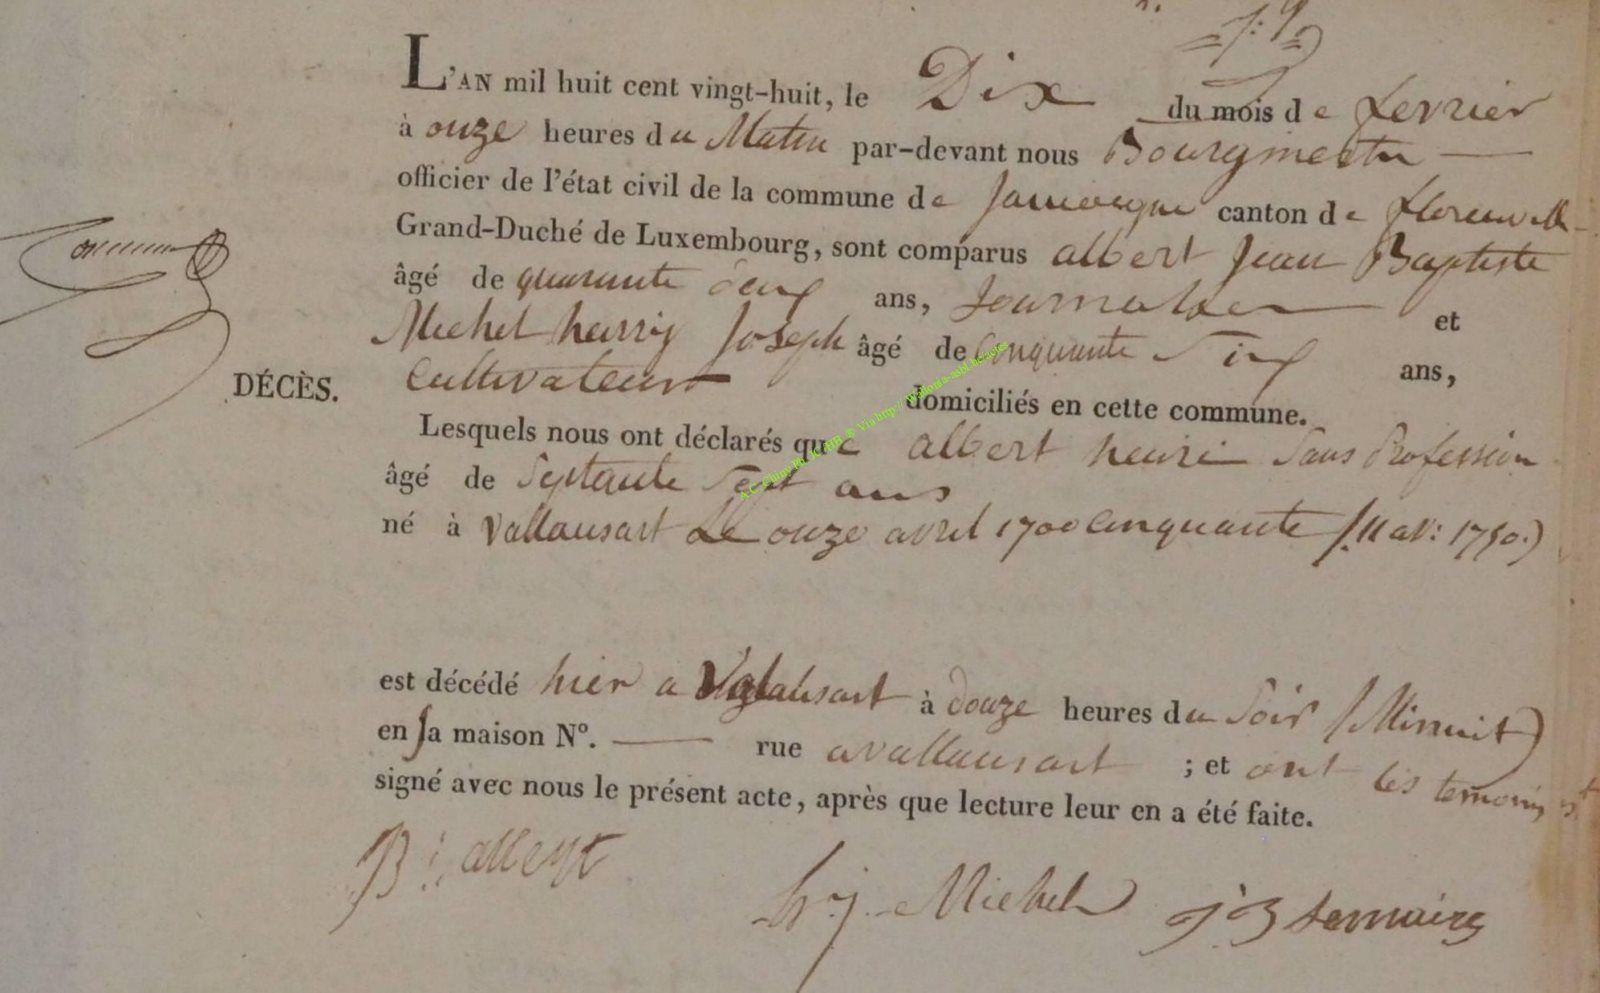 L'AN mil huit cent vingt-huit, le Dix du mois de fevrier
à onze heures du Matin par-devant nous Bourgmestre
officier de l'état civil de la commune de Jamoigne canton de florenville
Grand-Duché de Luxembourg, sont comparus albert Jean Baptiste
âgé de quarante deux ans, Journalier et
Michel henry Joseph âgé de Cinquante Six ans,
DÉCÈS. Cultivateurs domiciliés en cette commune.
Lesquels nous ont déclarés que albert henri Sans Profession
âgé de Septante Sept ans
né à Vallansart Le onze avril 1700 Cinquante /11 av: 1750.)
est décédé hier a Vallansart à douze heures du Soir /Minuit)
en Sa maison N°. — rue a vallansart ; et ont les temoins
signé avec nous le présent acte, après que lecture leur en a été faite.
B: albert
hrj Michel
A.C. Chiny